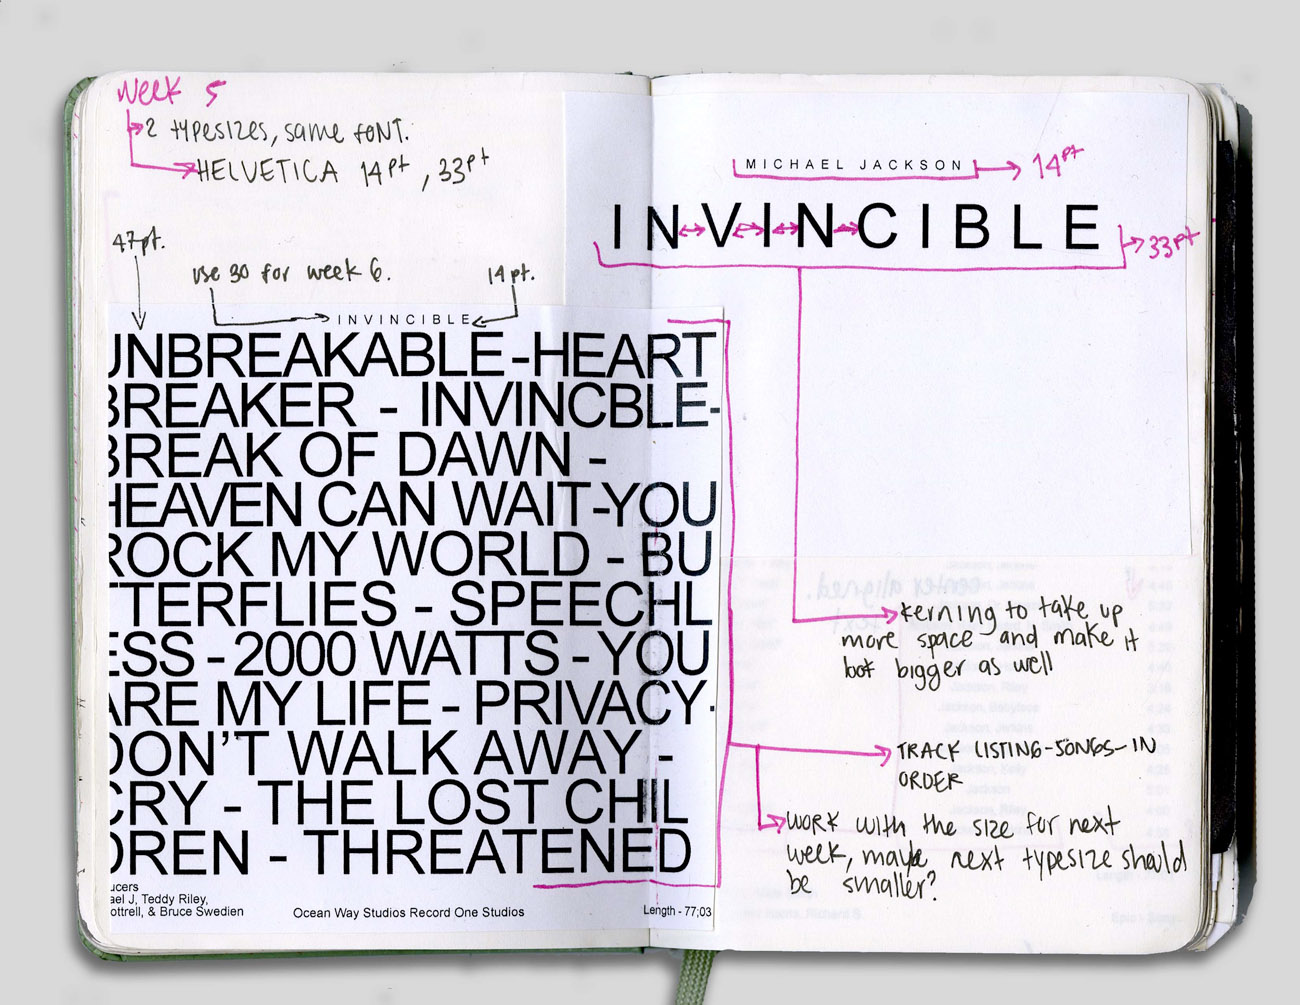 Week 5
2 typesizes, same font.
HELVETICA 14pt, 33pt
47pt.
use 30 for week 6.
14pt.
INVINCIBLE
UNBREAKABLE-HEART
BREAKER - INVINCBLE-
BREAK OF DAWN -
HEAVEN CAN WAIT-YOU
ROCK MY WORLD - BU
TTERFLIES - SPEECHL
ESS - 2000 WATTS - YOU
ARE MY LIFE - PRIVACY-
DON'T WALK AWAY -
CRY - THE LOST CHIL
DREN - THREATENED
ucers
ael J, Teddy Riley,
ottrell, & Bruce Swedien
Ocean Way Studios Record One Studios
Length - 77;03
MICHAEL JACKSON
14pt
INVINCIBLE
33pt
center aligned.
kerning to take up
more space and make it
look bigger as well
TRACK LISTING-SONGS-IN
ORDER
WORK with the size for next
week, maybe next typesize should
be smaller?